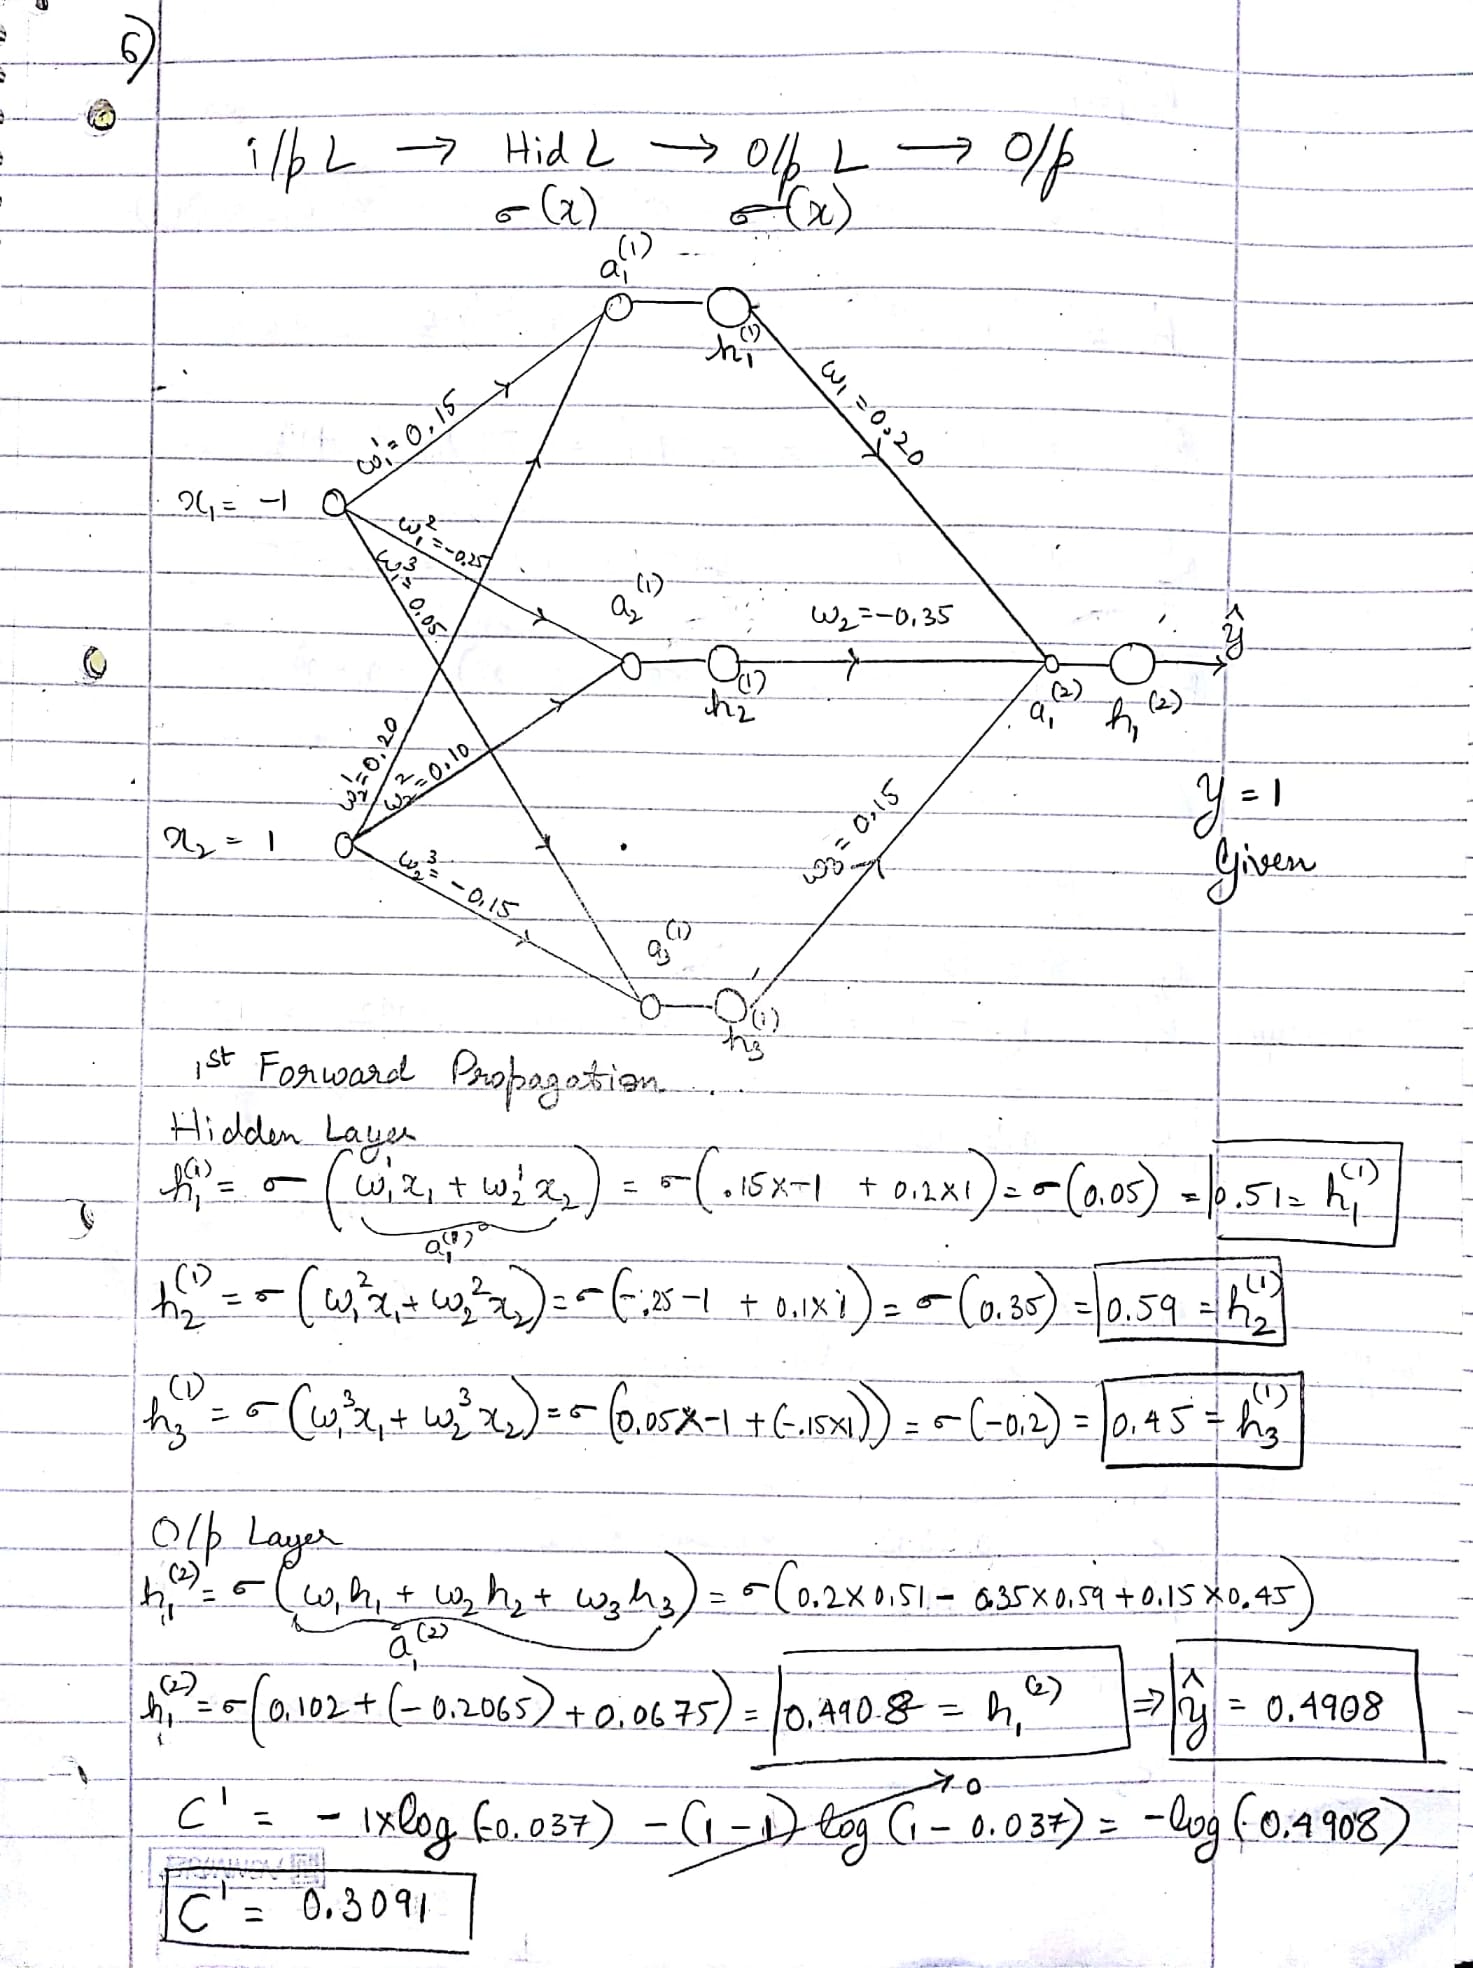 6)
i/p L → Hid L → O/p L → O/p
σ(x) σ(x)
a₁⁽¹⁾
h₁⁽¹⁾
ω₁¹ = 0.15
ω₁ = 0.20
x₁ = -1
ω₁² = -0.25
ω₁³ = 0.05
a₂⁽¹⁾
ω₂ = -0.35
ŷ
h₂⁽¹⁾
a₁⁽²⁾ h₁⁽²⁾
ω₂¹ = 0.20
ω₂² = 0.10
y = 1
Given
x₂ = 1
ω₂³ = -0.15
ω₃ = 0.15
a₃⁽¹⁾
h₃⁽¹⁾
1st Forward Propagation
Hidden Layer
h₁⁽¹⁾ = σ(ω₁¹x₁ + ω₂¹x₂) = σ(.15x-1 + 0.2x1) = σ(0.05) = 0.51 = h₁⁽¹⁾
a₁⁽¹⁾
h₂⁽¹⁾ = σ(ω₁²x₁ + ω₂²x₂) = σ(-.25-1 + 0.1x1) = σ(0.35) = 0.59 = h₂⁽¹⁾
h₃⁽¹⁾ = σ(ω₁³x₁ + ω₂³x₂) = σ(0.05x-1 + (-.15x1)) = σ(-0.2) = 0.45 = h₃⁽¹⁾
O/p Layer
h₁⁽²⁾ = σ(ω₁h₁ + ω₂h₂ + ω₃h₃) = σ(0.2x0.51 - 0.35x0.59 + 0.15x0.45)
a₁⁽²⁾
h₁⁽²⁾ = σ(0.102 + (-0.2065) + 0.0675) = 0.4908 = h₁⁽²⁾ ⇒ ŷ = 0.4908
C' = - 1xlog(-0.037) - (1-1) log(1-0.037) = -log(-0.4908)
0
C' = 0.3091